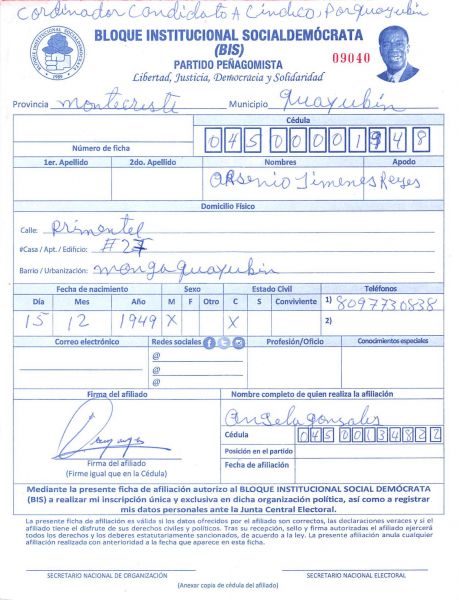 Cordinador Candidato A Cindico, Por Guayubin
BLOQUE INSTITUCIONAL SOCIALDEMÓCRATA
(BIS)
PARTIDO PEÑAGOMISTA
09040
Libertad, Justicia, Democracia y Solidaridad
BLOQUE INSTITUCIONAL SOCIALDEMOCRATA
1989
Provincia Montecristi Municipio Guayubin
Cédula
Número de ficha 04500001948
1er. Apellido 2do. Apellido Nombres Apodo
Arsenio Jimenes Reyes
Domicilio Físico
Calle: Primentel
#Casa / Apt. / Edificio: #27
Barrio / Urbanización: monga guayubin
Fecha de nacimiento Sexo Estado Civil Teléfonos
Día Mes Año M F Otro C S Conviviente 1) 8097730838
15 12 1949 X X 2)
Correo electrónico Redes sociales Profesión/Oficio Conocimientos especiales
@
@
@
Firma del afiliado Nombre completo de quien realiza la afiliación
Angela Gonzales
Cédula 04500134822
Posición en el partido
Fecha de afiliación
Firma del afiliado
(Firme igual que en la Cédula)
Mediante la presente ficha de afiliación autorizo al BLOQUE INSTITUCIONAL SOCIAL DEMÓCRATA
(BIS) a realizar mi inscripción única y exclusiva en dicha organización política, así como a registrar
mis datos personales ante la Junta Central Electoral.
La presente ficha de afiliación es válida si los datos ofrecidos por el afiliado son correctos, las declaraciones veraces y si el
afiliado tiene el disfrute de sus derechos civiles y políticos. Tras su recepción, sello y firma autorizadas el afiliado ejercerá
todos los derechos y los deberes estatutariamente sancionados, de acuerdo a la ley. La presente afiliación anula cualquier
afiliación realizada con anterioridad a la fecha que aparece en esta ficha.
SECRETARIO NACIONAL DE ORGANIZACIÓN SECRETARIO NACIONAL ELECTORAL
(Anexar copia de cédula del afiliado)